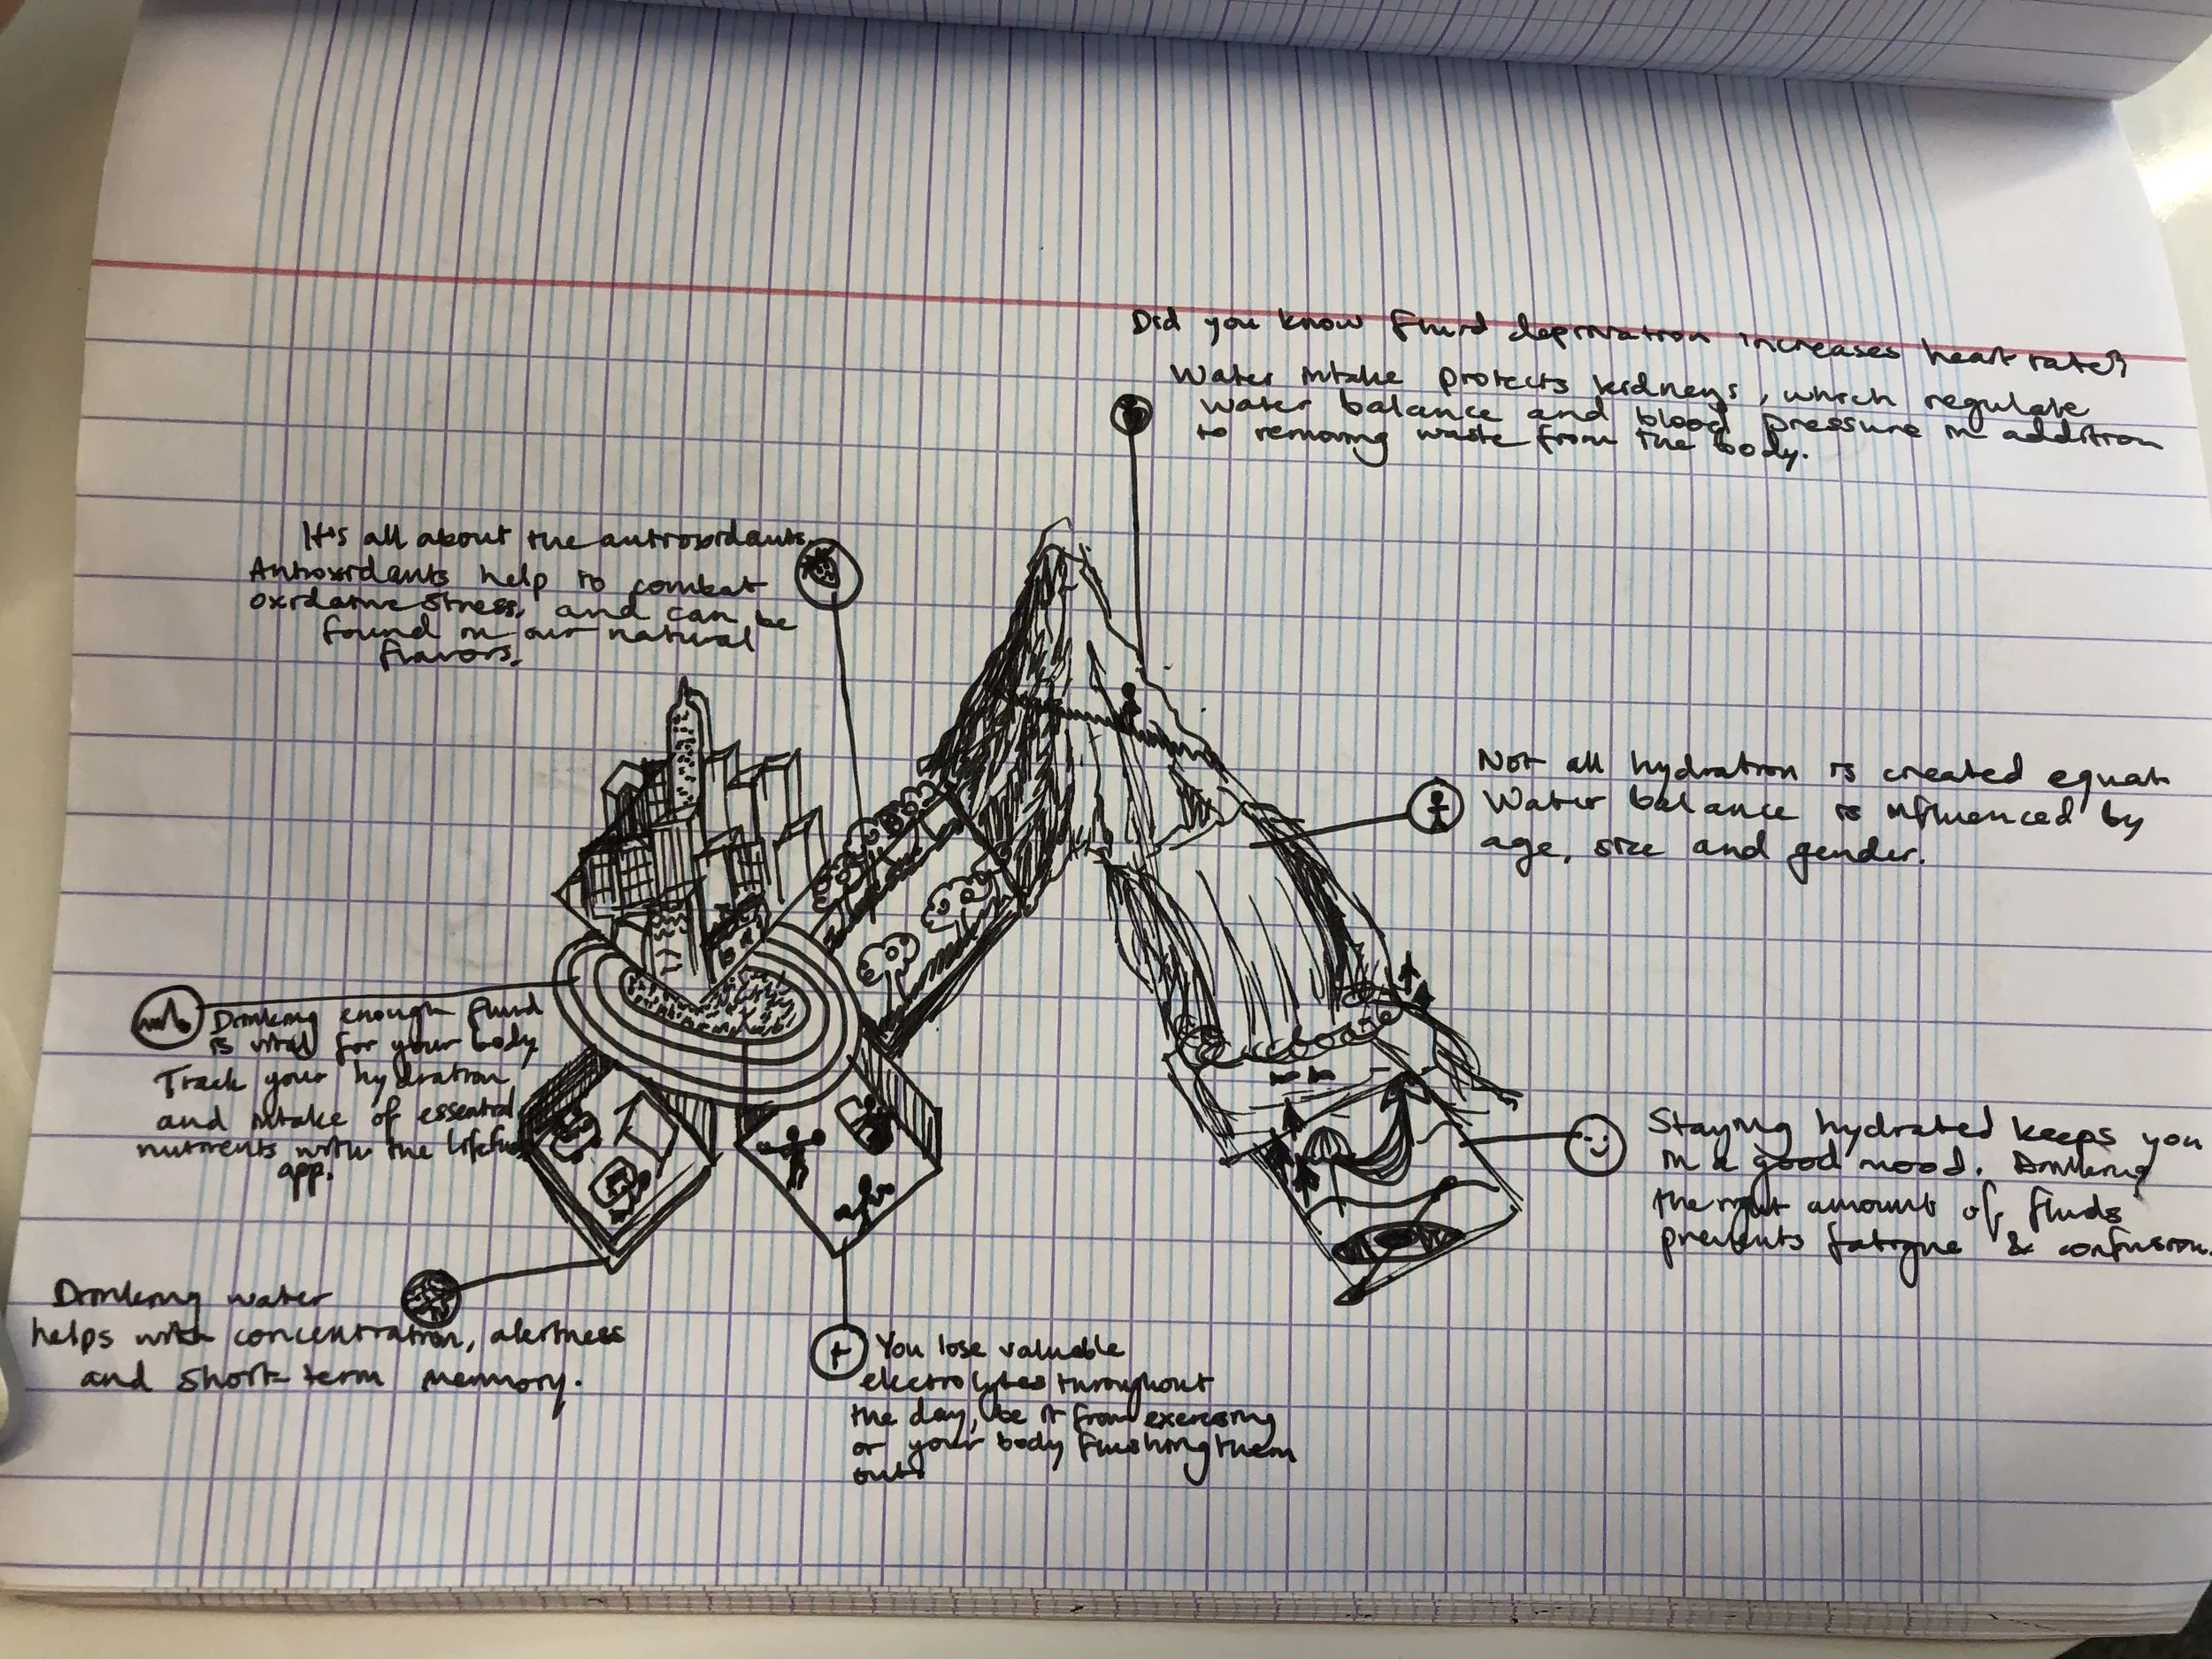 Did you know fluid deprivation increases heart rate?
Water intake protects kidneys, which regulate
water balance and blood pressure in addition
to removing waste from the body.
It's all about the antioxidants.
Antioxidants help to combat
oxidative stress, and can be
found in our natural
flavors.
Not all hydration is created equal.
Water balance is influenced by
age, size and gender.
Drinking enough fluid
is vital for your body.
Track your hydration
and intake of essential
nutrients with the lifefuels
app.
Staying hydrated keeps you
in a good mood. Drinking
the right amount of fluids
prevents fatigue & confusion.
Drinking water
helps with concentration, alertness
and short-term memory.
You lose valuable
electrolytes throughout
the day, be it from exercising
or your body flushing them
out.